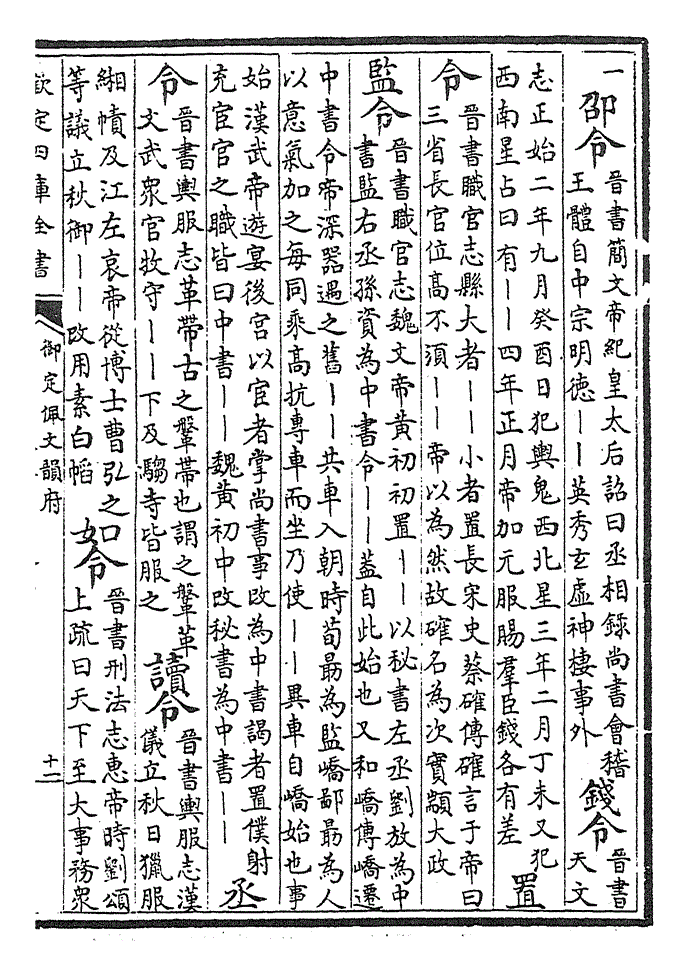 一邵令
晉書簡文帝紀皇太后詔曰丞相錄尚書會稽
王體自中宗明徳——英秀玄虛神棲事外
錢令
晉書
天文
志正始二年九月癸酉日犯輿鬼西北星三年二月丁未又犯
西南星占曰有——四年正月帝加元服賜羣臣錢各有差
置
令
晉書職官志縣大者——小者置長宋史蔡確傳確言于帝曰
三省長官位髙不須——帝以為然故確名為次實顓大政
監令
晉書職官志魏文帝黄初初置——以秘書左丞劉放為中
書監右丞孫資為中書令——蓋自此始也又和嶠傳嶠遷
中書令帝深器遇之舊——共車入朝時荀勗為監嶠鄙勗為人
以意氣加之每同乘髙抗專車而坐乃使——異車自嶠始也事
始漢武帝遊宴後宫以宦者掌尚書事改為中書謁者置僕射
充宦官之職皆曰中書——魏黄初中改秘書為中書——
丞
令
晉書輿服志革帶古之鞶帶也謂之鞶革
文武衆官牧守——下及騶寺皆服之
讀令
晉書輿服志漢
儀立秋日獵服
緗幘及江左哀帝從博士曹弘之
等議立秋御——改用素白㡊
如令
晉書刑法志惠帝時劉頌
上疏曰天下至大事務衆
欽定四庫全書
御定佩文韻府
十二